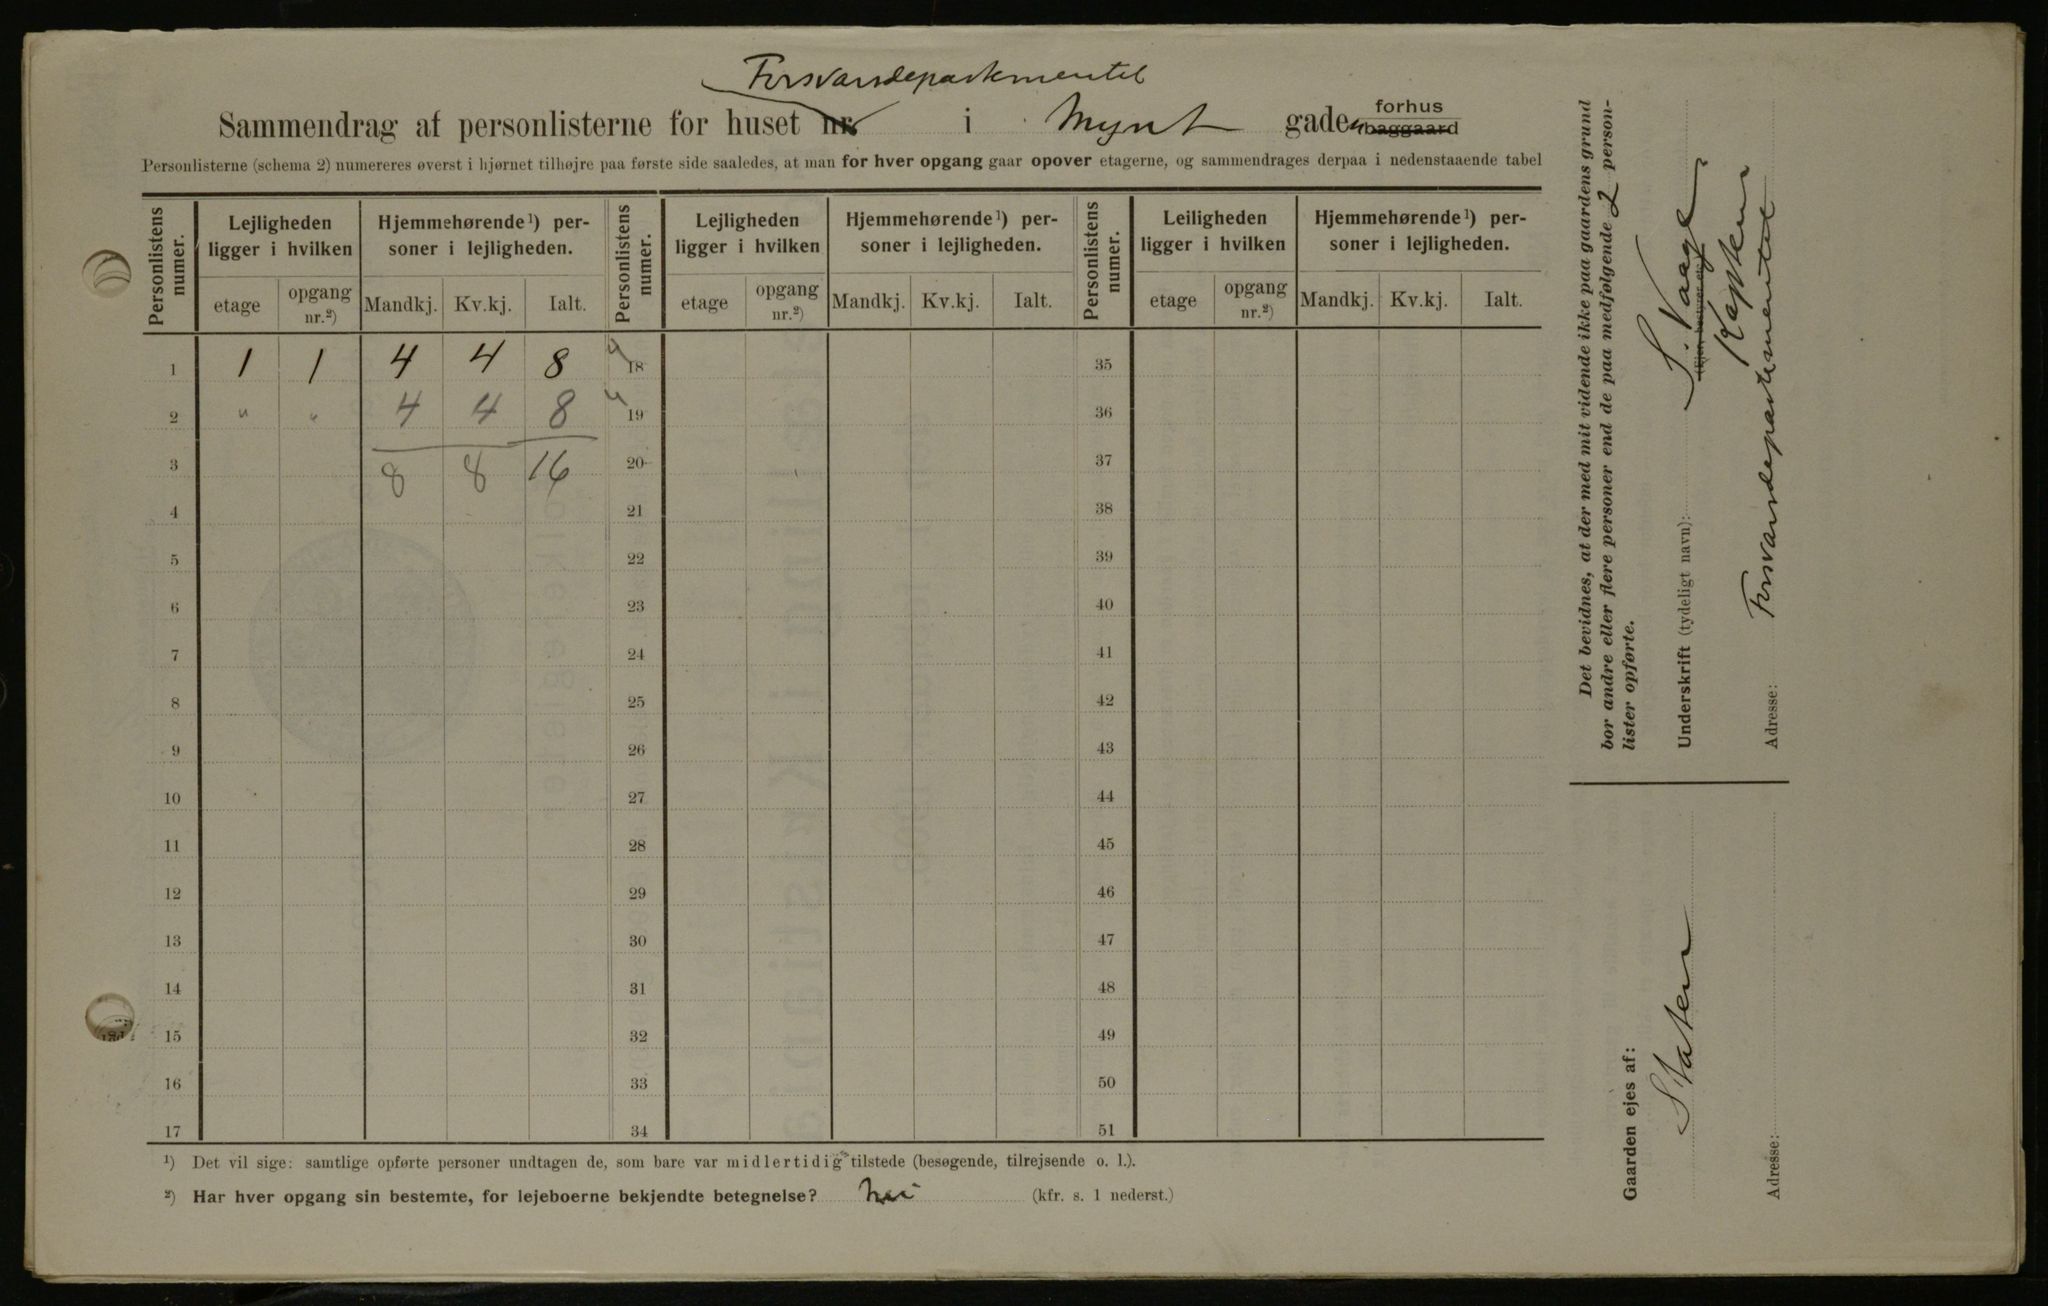 Forsvarsdepartementet
Sammendrag af personlisterne for huset nr. i Mynt gaden forhus baggaard
Personlisterne (schema 2) numereres øverst i hjørnet tilhøjre paa første side saaledes, at man for hver opgang gaar opover etagerne, og sammendrages derpaa i nedenstaaende tabel
Personlistens numer. Lejligheden ligger i hvilken Hjemmehørende¹) personer i lejligheden. Personlistens numer. Lejligheden ligger i hvilken Hjemmehørende¹) personer i lejligheden. Personlistens numer. Leiligheden ligger i hvilken Hjemmehørende¹) personer i lejligheden.
etage opgang nr.²) Mandkj. Kv.kj. Ialt. etage opgang nr.²) Mandkj. Kv.kj. Ialt. etage opgang nr.²) Mandkj. Kv.kj. Ialt.
1 1 1 4 4 8 18 35
2 " " 4 4 8 19 36
3 8 8 16 20 37
4 21 38
5 22 39
6 23 40
7 24 41
8 25 42
9 26 43
10 27 44
11 28 45
12 29 46
13 30 47
14 31 48
15 32 49
16 33 50
17 34 51
¹) Det vil sige: samtlige opførte personer undtagen de, som bare var midlertidig tilstede (besøgende, tilrejsende o. l.).
²) Har hver opgang sin bestemte, for lejeboerne bekjendte betegnelse? nei (kfr. s. 1 nederst.)
Det bevidnes, at der med mit vidende ikke paa gaardens grund
bor andre eller flere personer end de paa medfølgende 2 person-
lister opførte.
Underskrift (tydeligt navn): S. Vaage
(Ejer, bestyrer etc.)
Adresse: Forsvarsdepartementet
Gaarden ejes af:
Staten
Adresse: